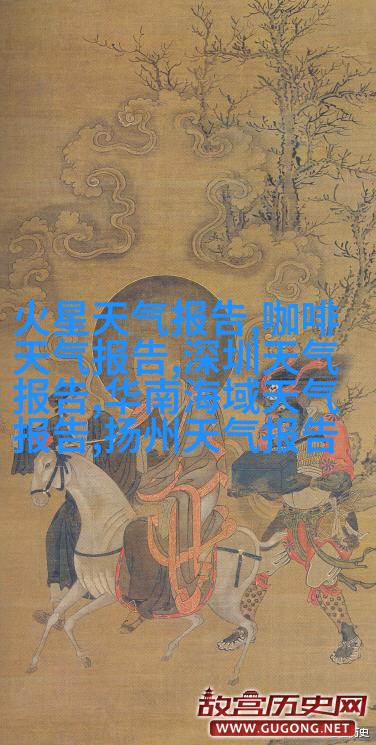 火星天气报告,咖啡
天气报告,深圳天气
报告,华南海域天气
报告,扬州天气报告
故宫历史网
WWW.GUGONG.NET
历史